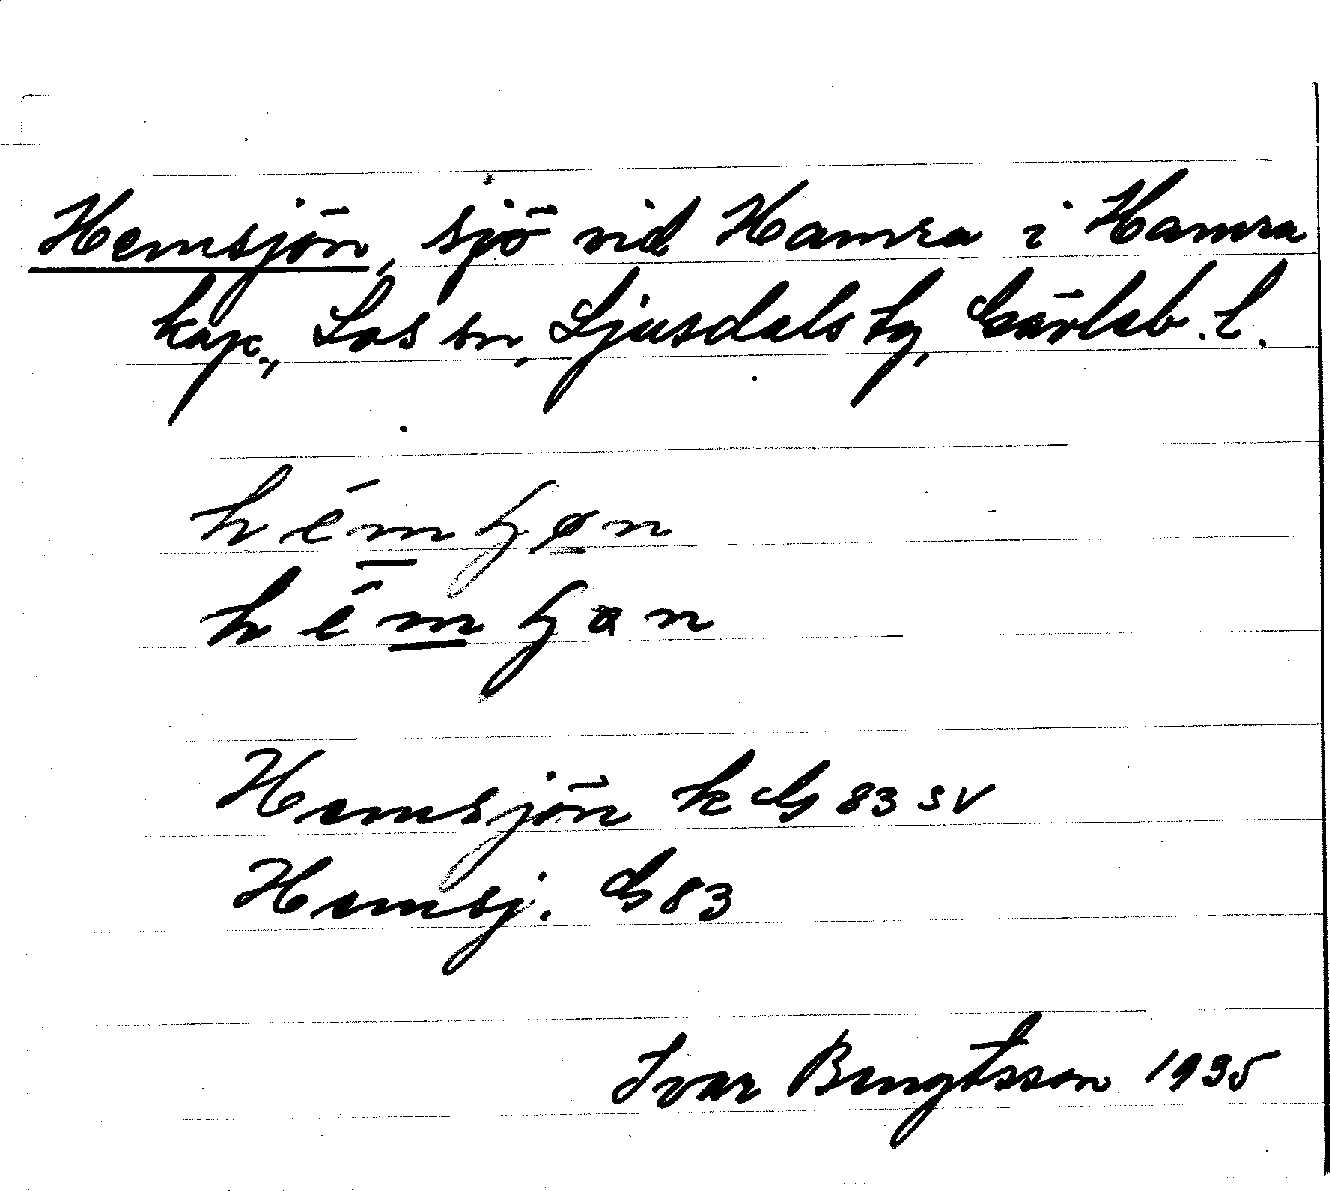 Hemsjön, sjö vid Hamra i Hamra
kap., Los sn, Ljusdals tg, Gävleb. l.
Hemsjön k G 83 SV
Hemsj. G 83
Ivar Bengtsson 1935